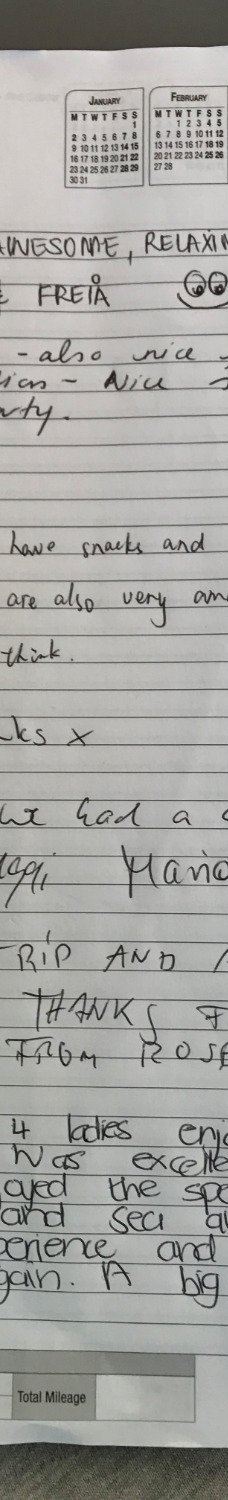 JANUARY
M T W T F S S
1
2 3 4 5 6 7 8
9 10 11 12 13 14 15
16 17 18 19 20 21 22
23 24 25 26 27 28 29
30 31
FEBRUARY
M T W T F S S
1 2 3 4 5
6 7 8 9 10 11 12
13 14 15 16 17 18 19
20 21 22 23 24 25 26
27 28
AWESOME, RELAXIN
& FREIÅ
- also nice
- Nice
rty.
have snacks and
are also very am
think.
ks x
had a
Maria
RIP AND
THANKS F
FROM ROSE
4 ladies enjo
Was excelle
oyed the spe
and sea a
perience and
gain. A big
Total Mileage